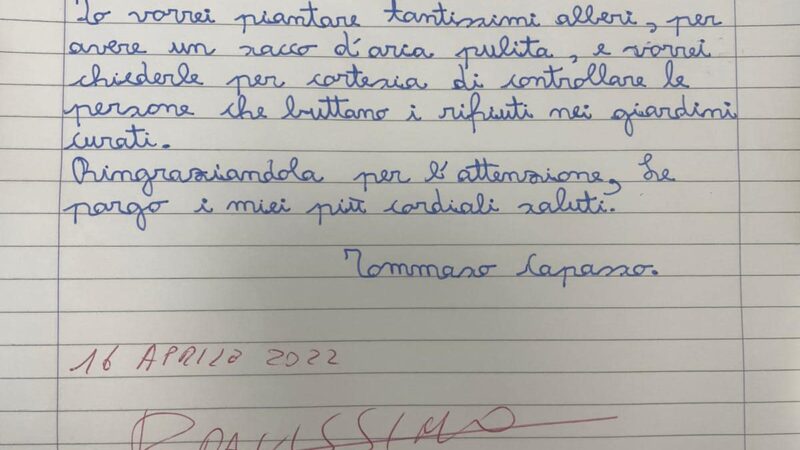 Io vorrei piantare tantissimi alberi, per
avere un sacco d'aria pulita, e vorrei
chiederle per cortesia di controllare le
persone che buttano i rifiuti nei giardini
curati.
Ringraziandola per l'attenzione, Le
porgo i miei più cordiali saluti.
Tommaso Capasso.
16 APRILE 2022
BRAVISSIMO